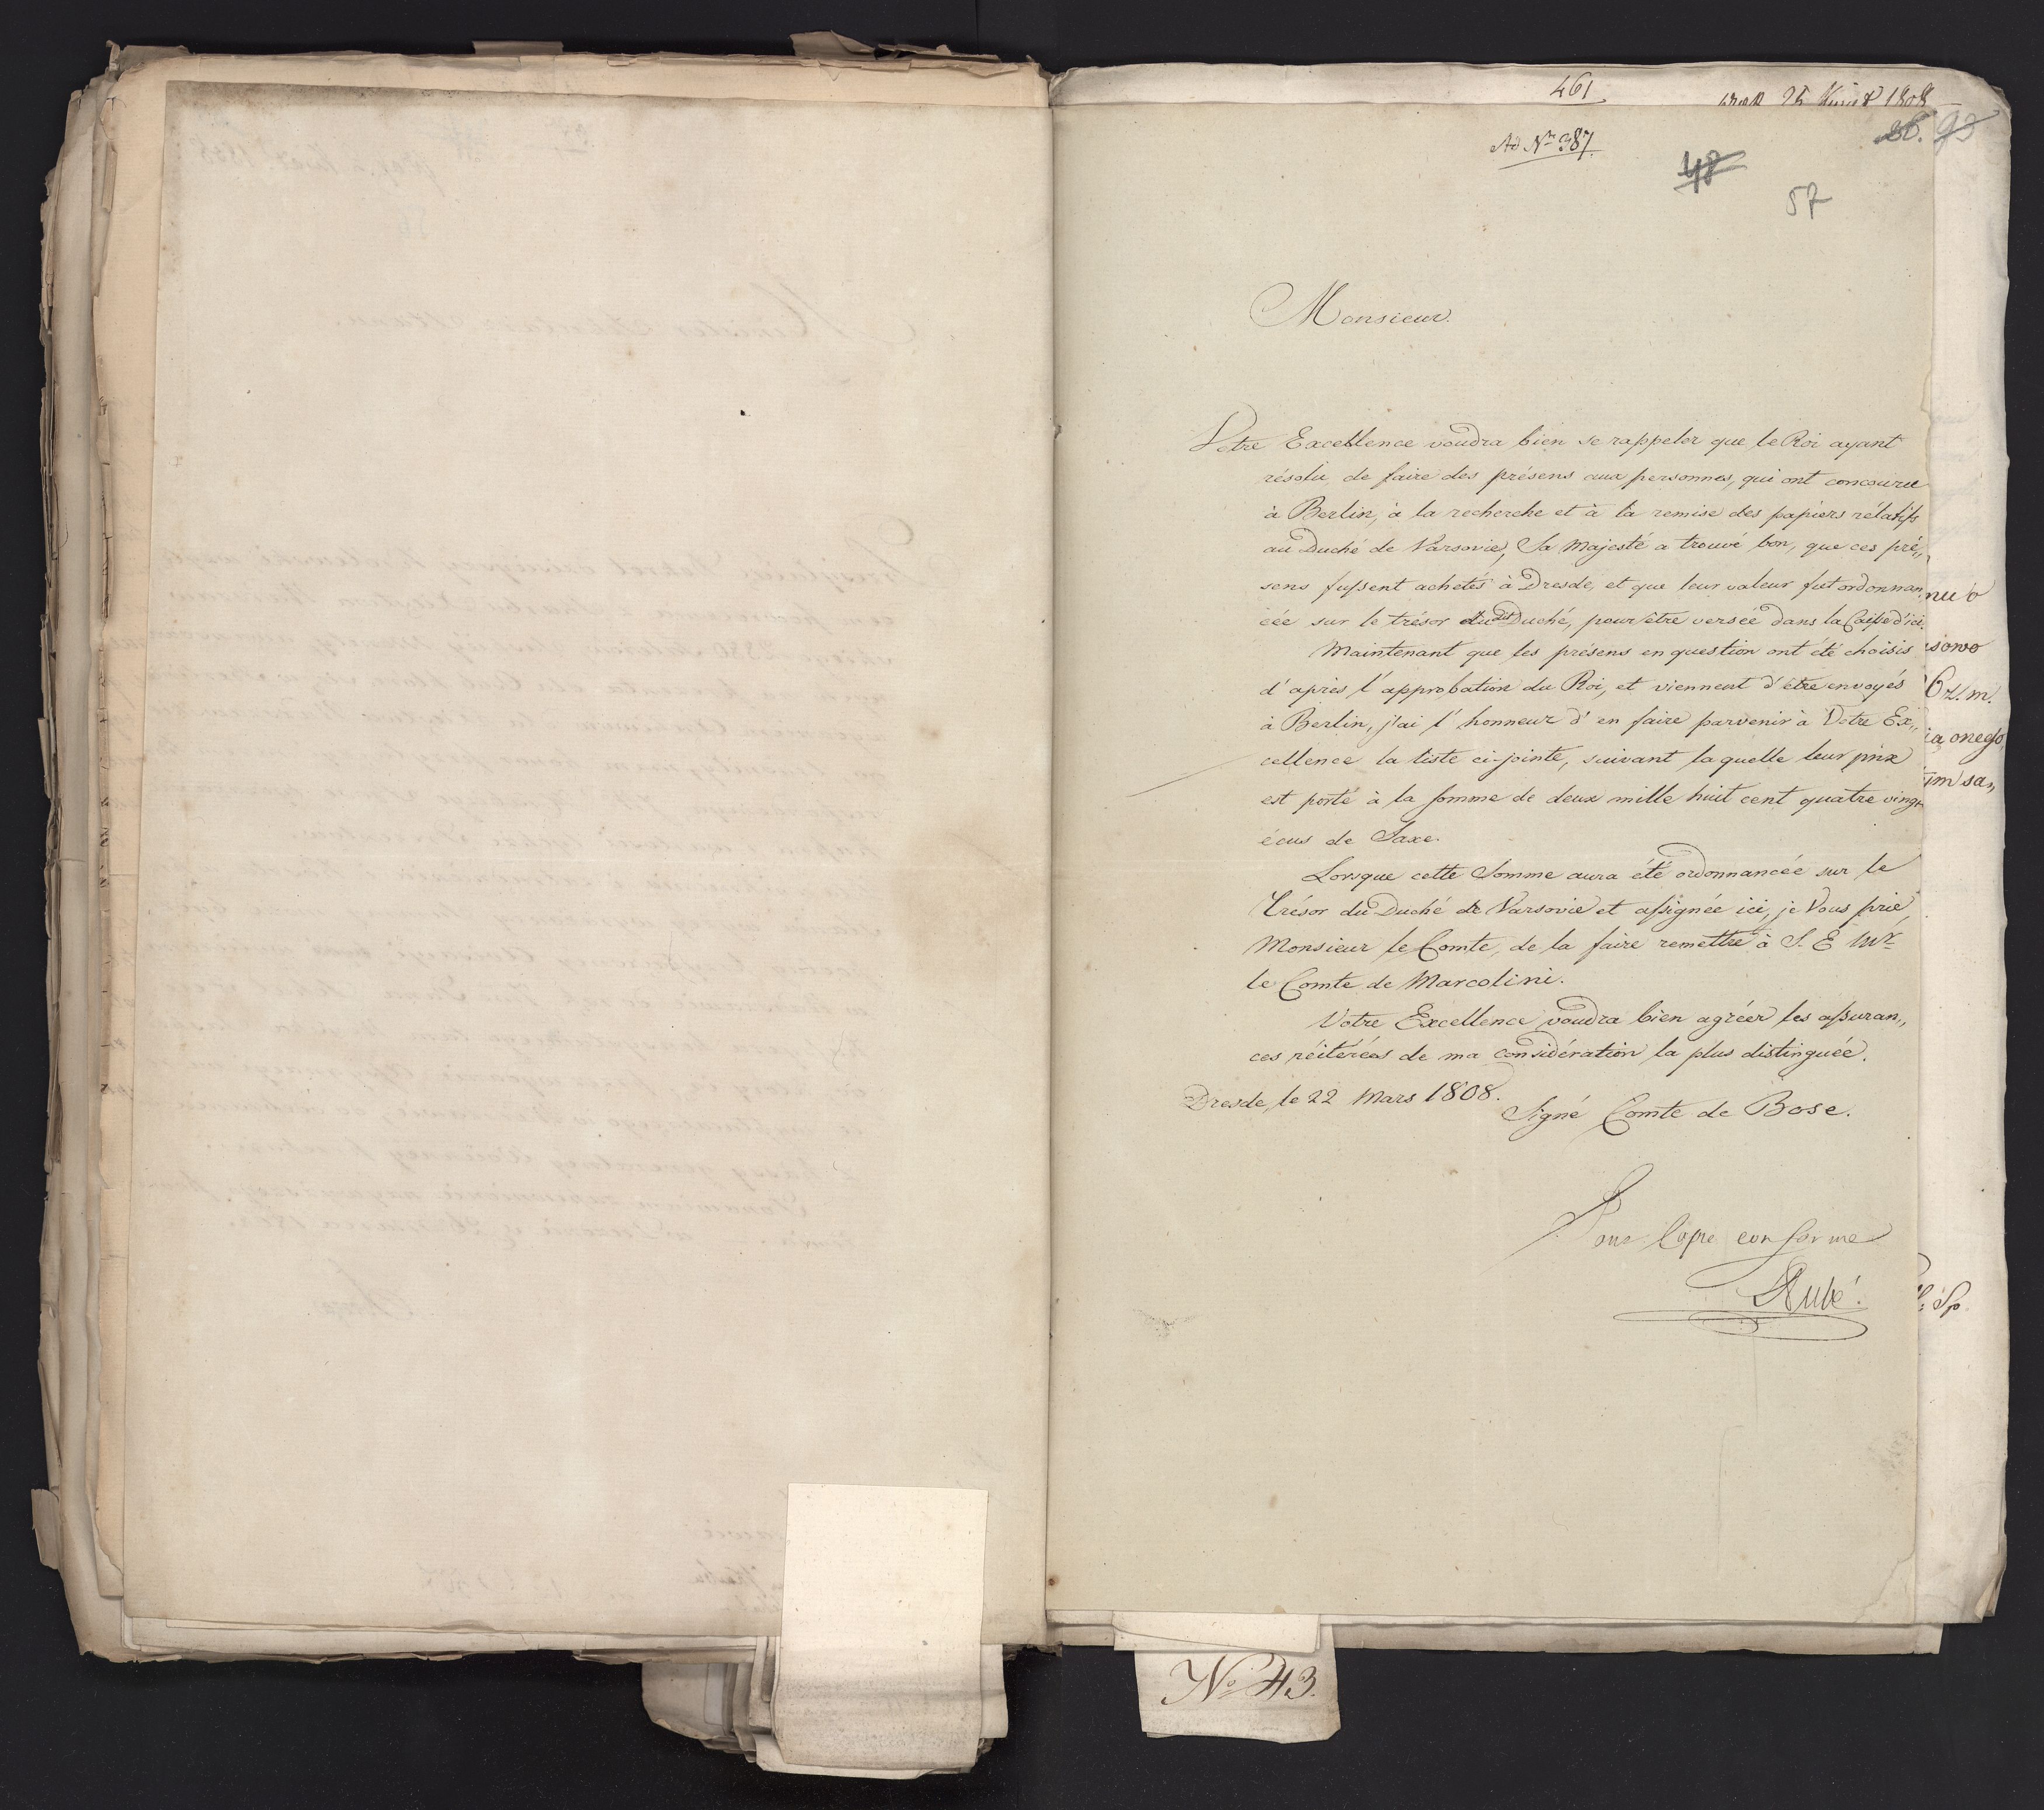 461
25 1808
Ad Nr 387.
36. 93
48
57
Monsieur.
Votre Excellence voudra bien se rappeler que le Roi ayant
résolu de faire des présens aux personnes, qui ont concouru
à Berlin, à la recherche et à la remise des papiers rélatifs
au Duché de Varsovie, Sa Majesté a trouvé bon, que ces pré„
sens fussent achetés à Dresde, et que leur valeur fut ordonnan„
cée sur le trésor dudit Duché, pour être versée dans la Caisse d'ici.
Maintenant que les présens en question ont été choisis
d'après l'approbation du Roi, et viennent d'être envoyés
à Berlin, j'ai l'honneur d'en faire parvenir à Votre Ex„
cellence la liste ci-jointe, suivant laquelle leur prix
est porté à la somme de deux mille huit cent quatre vingt
écus de Saxe.
Lorsque cette Somme aura été ordonnancée sur le
Trésor du Duché de Varsovie et assignée ici, je Vous prie,
Monsieur le Comte, de la faire remettre à S. E Mr
le Comte de Marcolini.
Votre Excellence voudra bien agréer les assuran„
ces réitérées de ma considération la plus distinguée.
Dresde, le 22 Mars 1808.
Signé Comte de Bose.
Pour Copie conforme
Aubé.
No 43.